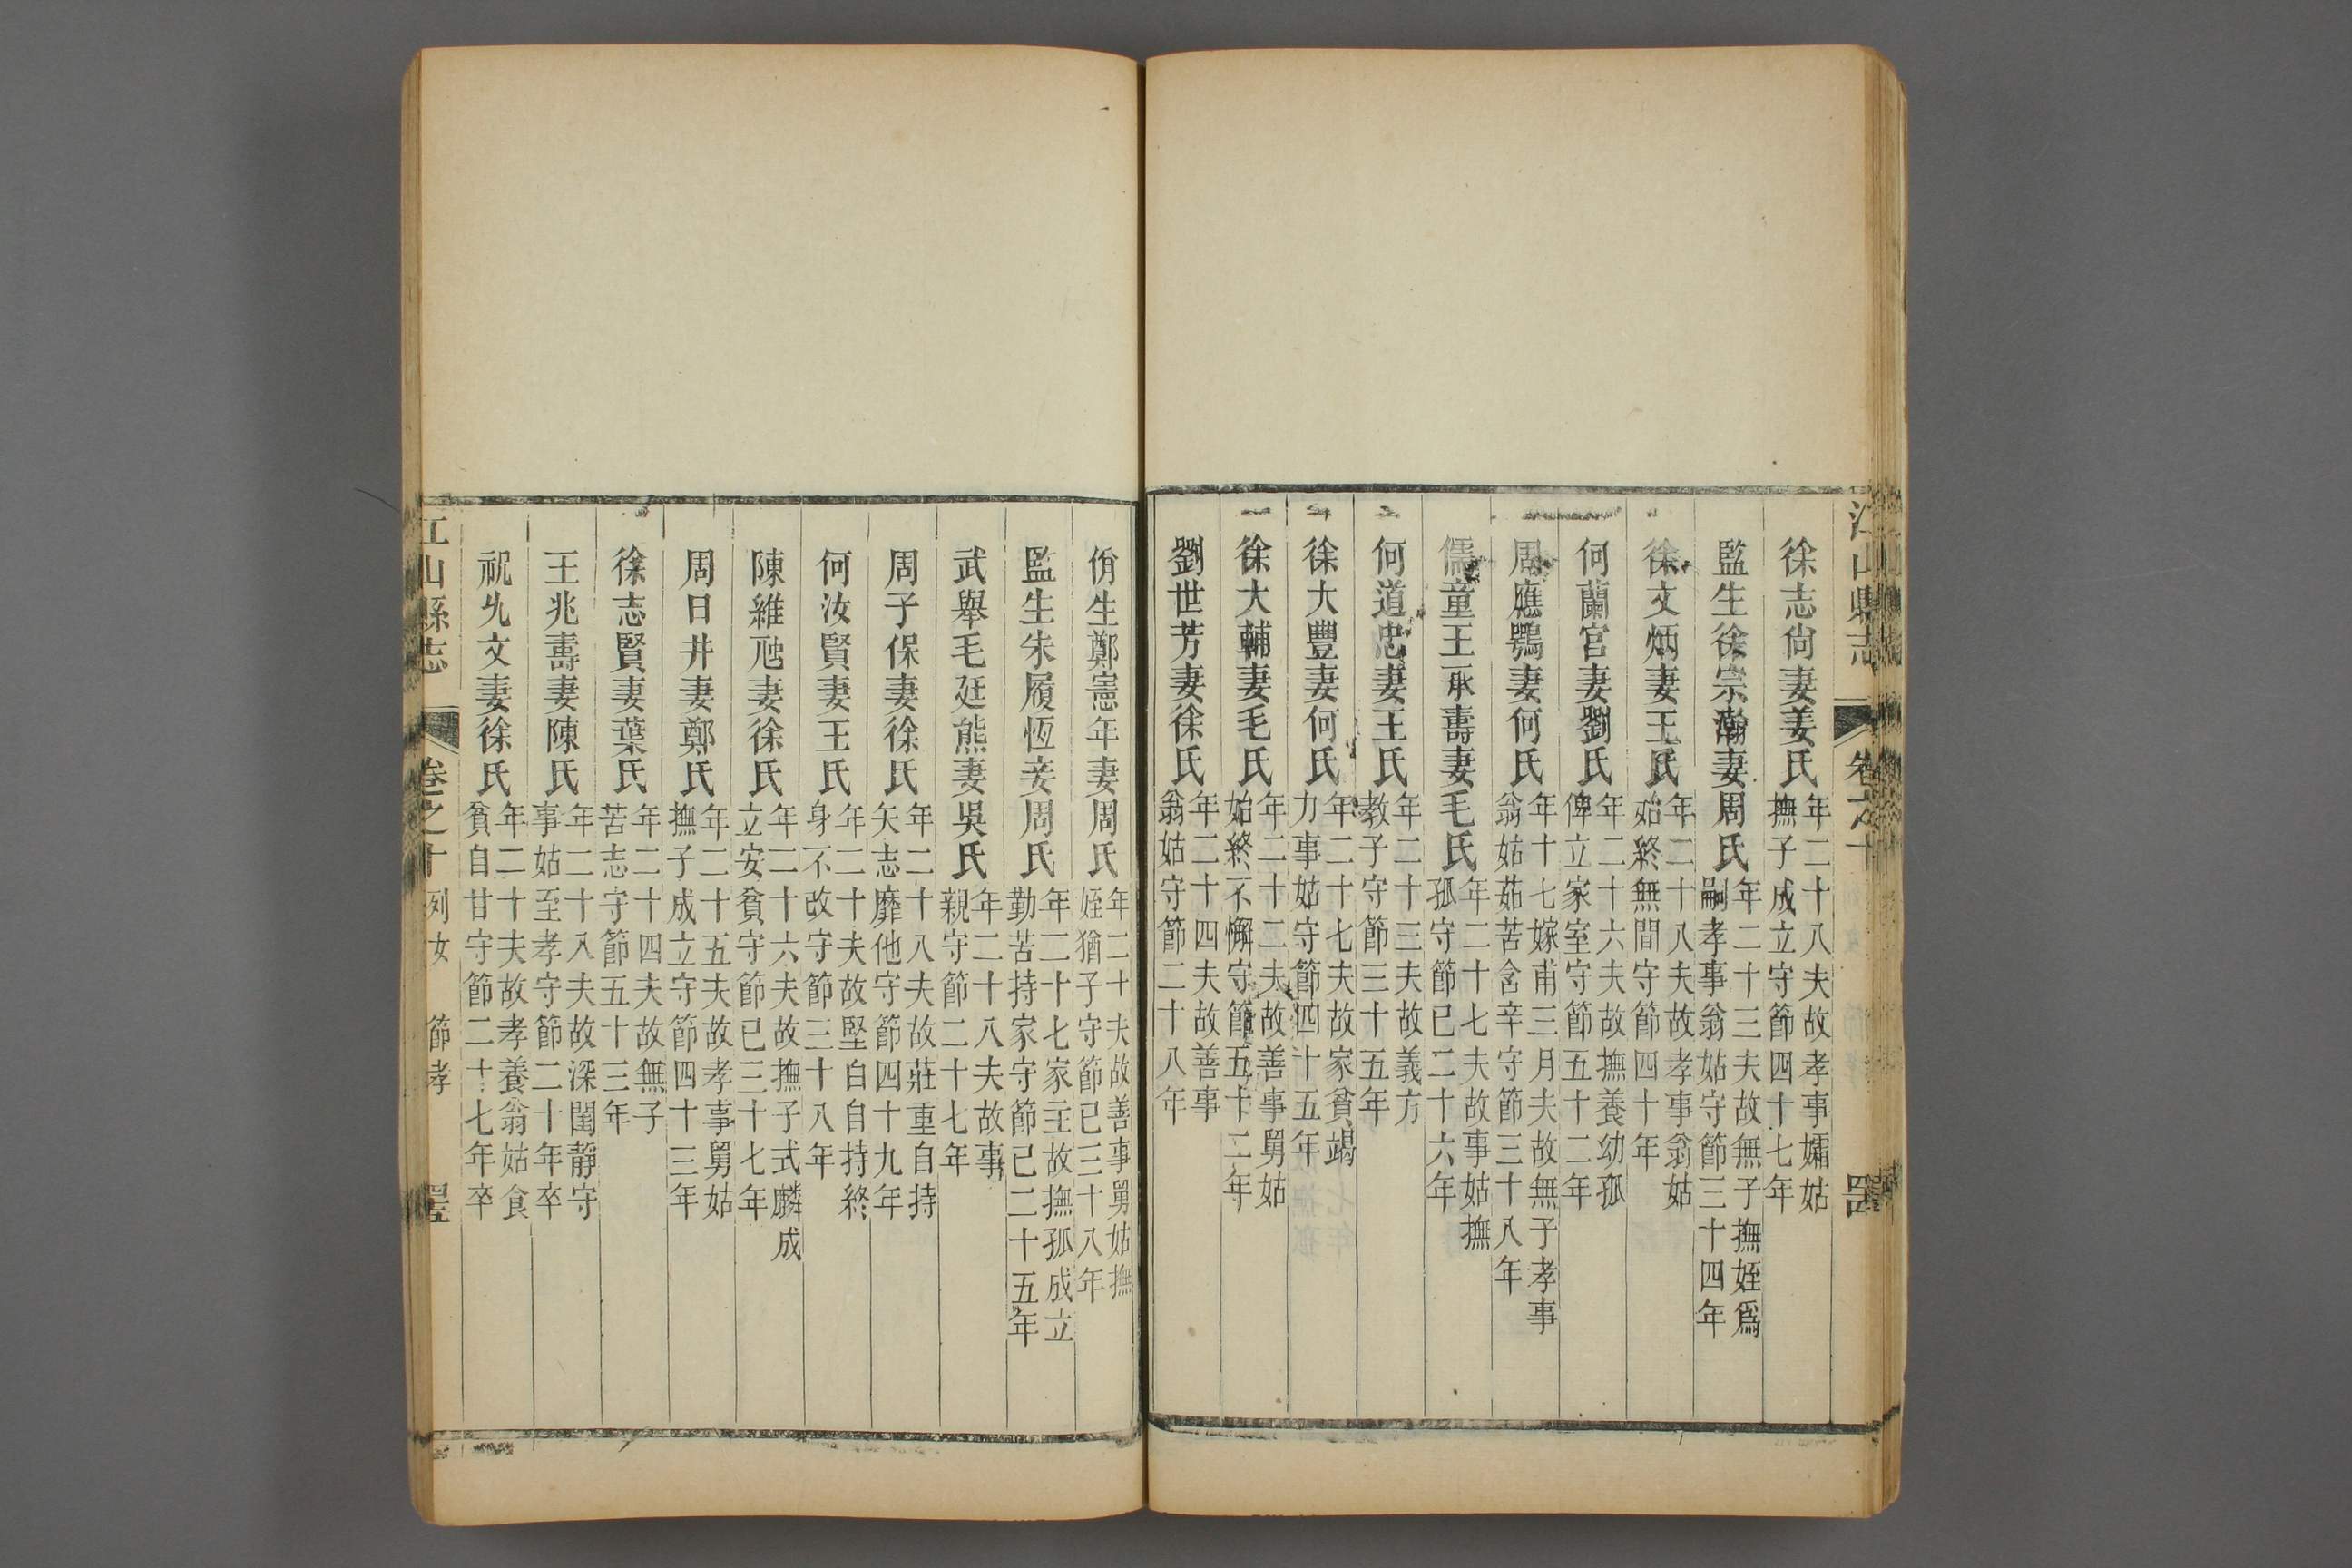 江山縣志 卷之十 四十四
徐志尙妻姜氏 年二十八夫故孝事孀姑
撫子成立守節四十七年
監生徐宗瀚妻周氏 年二十三夫故無子撫姪爲
嗣孝事翁姑守節三十四年
徐文炳妻王氏 年二十八夫故孝事翁姑
始終無間守節四十年
何蘭官妻劉氏 年二十六夫故撫養幼孤
俾立家室守節五十二年
周應鶚妻何氏 年十七嫁甫三月夫故無子孝事
翁姑茹苦含辛守節三十八年
儒童王承壽妻毛氏 年二十七夫故事姑撫
孤守節已二十六年
何道忠妻王氏 年二十三夫故義方
教子守節三十五年
徐大豐妻何氏 年二十七夫故家貧竭
力事姑守節四十五年
徐大輔妻毛氏 年二十二夫故善事舅姑
始終不懈守節五十二年
劉世芳妻徐氏 年二十四夫故善事
翁姑守節二十八年
佾生鄭憲年妻周氏 年二十夫故善事舅姑撫
姪猶子守節已三十八年
監生朱履恆妾周氏 年二十七家主故撫孤成立
勤苦持家守節已二十五年
武舉毛廷熊妻吳氏 年二十八夫故事
親守節二十七年
周子保妻徐氏 年二十八夫故莊重自持
矢志靡他守節四十九年
何汝賢妻王氏 年二十夫故堅白自持終
身不改守節三十八年
陳維妻徐氏 年二十六夫故撫子式麟成
立安貧守節已三十七年
周日井妻鄭氏 年二十五夫故孝事舅姑
撫子成立守節四十三年
徐志賢妻葉氏 年二十四夫故無子
苦志守節五十三年
王兆壽妻陳氏 年二十八夫故深閨靜守
事姑至孝守節二十年卒
祝允文妻徐氏 年二十夫故孝養翁姑食
貧自甘守節二十七年卒
江山縣志 卷之十 列女 節孝 四十五